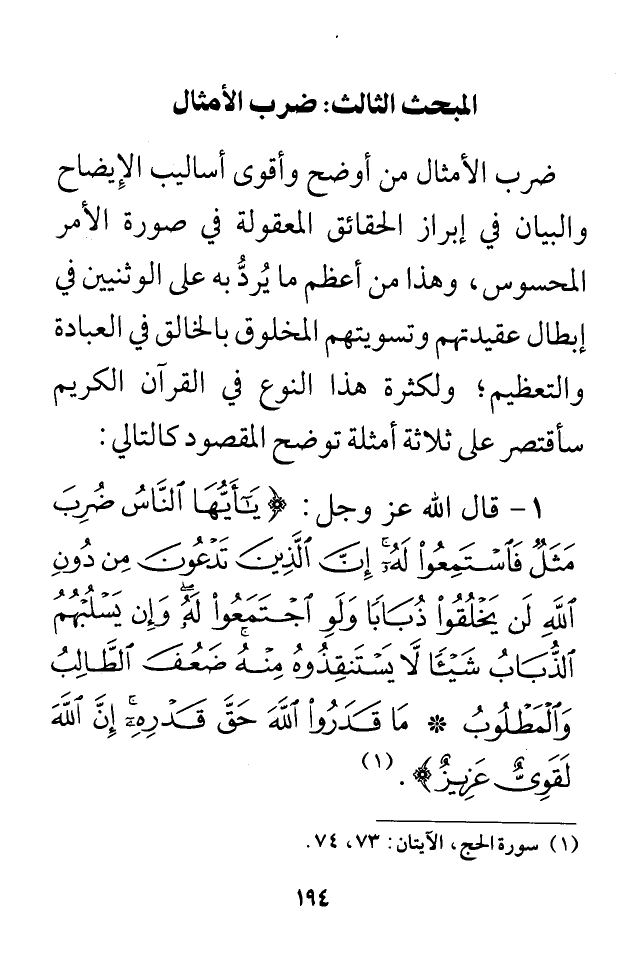 المبحث الثالث: ضرب الأمثال
ضرب الأمثال من أوضح وأقوى أساليب الإيضاح
والبيان في إبراز الحقائق المعقولة في صورة الأمر
المحسوس، وهذا من أعظم ما يُردُّ به على الوثنيين في
إبطال عقيدتهم وتسويتهم المخلوق بالخالق في العبادة
والتعظيم؛ ولكثرة هذا النوع في القرآن الكريم
سأقتصر على ثلاثة أمثلة توضح المقصود كالتالي:
١- قال الله عز وجل: ﴿يَٰٓأَيُّهَا ٱلنَّاسُ ضُرِبَ
مَثَلٌ فَٱسْتَمِعُوا۟ لَهُۥٓ ۚ إِنَّ ٱلَّذِينَ تَدْعُونَ مِن دُونِ
ٱللَّهِ لَن يَخْلُقُوا۟ ذُبَابًا وَلَوِ ٱجْتَمَعُوا۟ لَهُۥ ۖ وَإِن يَسْلُبْهُمُ
ٱلذُّبَابُ شَيْـًٔا لَّا يَسْتَنقِذُوهُ مِنْهُ ۚ ضَعُفَ ٱلطَّالِبُ
وَٱلْمَطْلُوبُ * مَا قَدَرُوا۟ ٱللَّهَ حَقَّ قَدْرِهِۦٓ ۗ إِنَّ ٱللَّهَ
لَقَوِىٌّ عَزِيزٌ﴾.(١)
(١) سورة الحج، الآيتان: ٧٣، ٧٤.
١٩٤